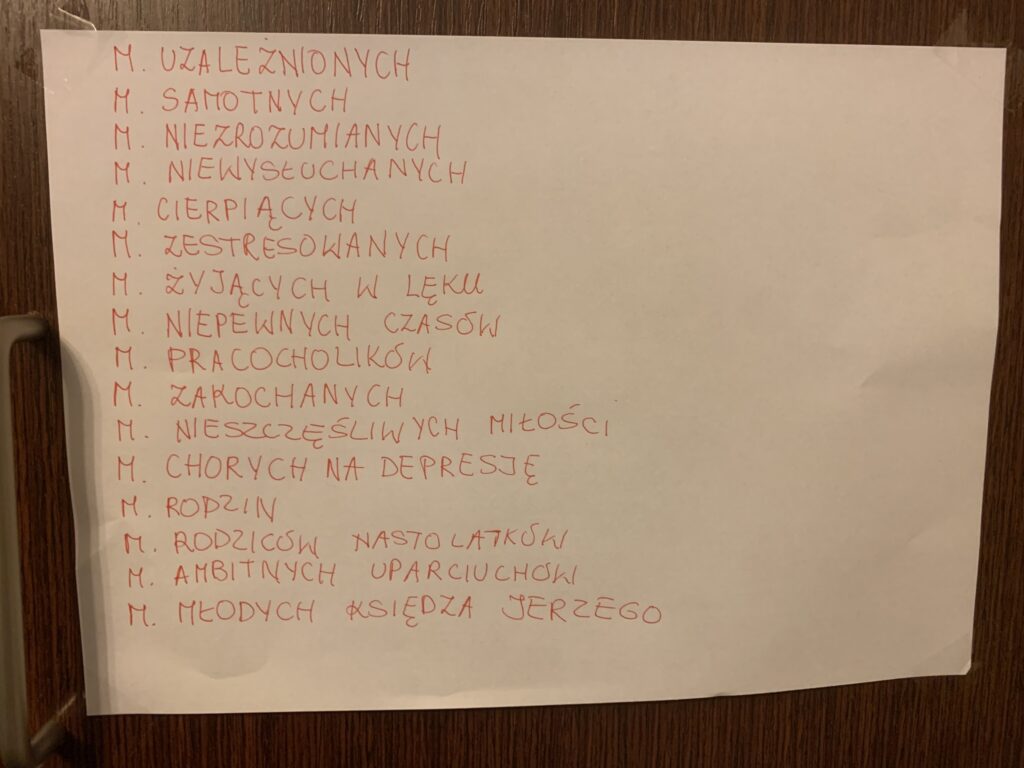 M. UZALEŻNIONYCH
M. SAMOTNYCH
M. NIEZROZUMIANYCH
M. NIEWYSŁUCHANYCH
M. CIERPIĄCYCH
M. ZESTRESOWANYCH
M. ŻYJĄCYCH W LĘKU
M. NIEPEWNYCH CZASÓW
M. PRACOCHOLIKÓW
M. ZAKOCHANYCH
M. NIESZCZĘŚLIWYCH MIŁOŚCI
M. CHORYCH NA DEPRESJĘ
M. RODZIN
M. RODZICÓW NASTOLATKÓW
M. AMBITNYCH UPARCIUCHÓW
M. MŁODYCH KSIĘDZA JERZEGO